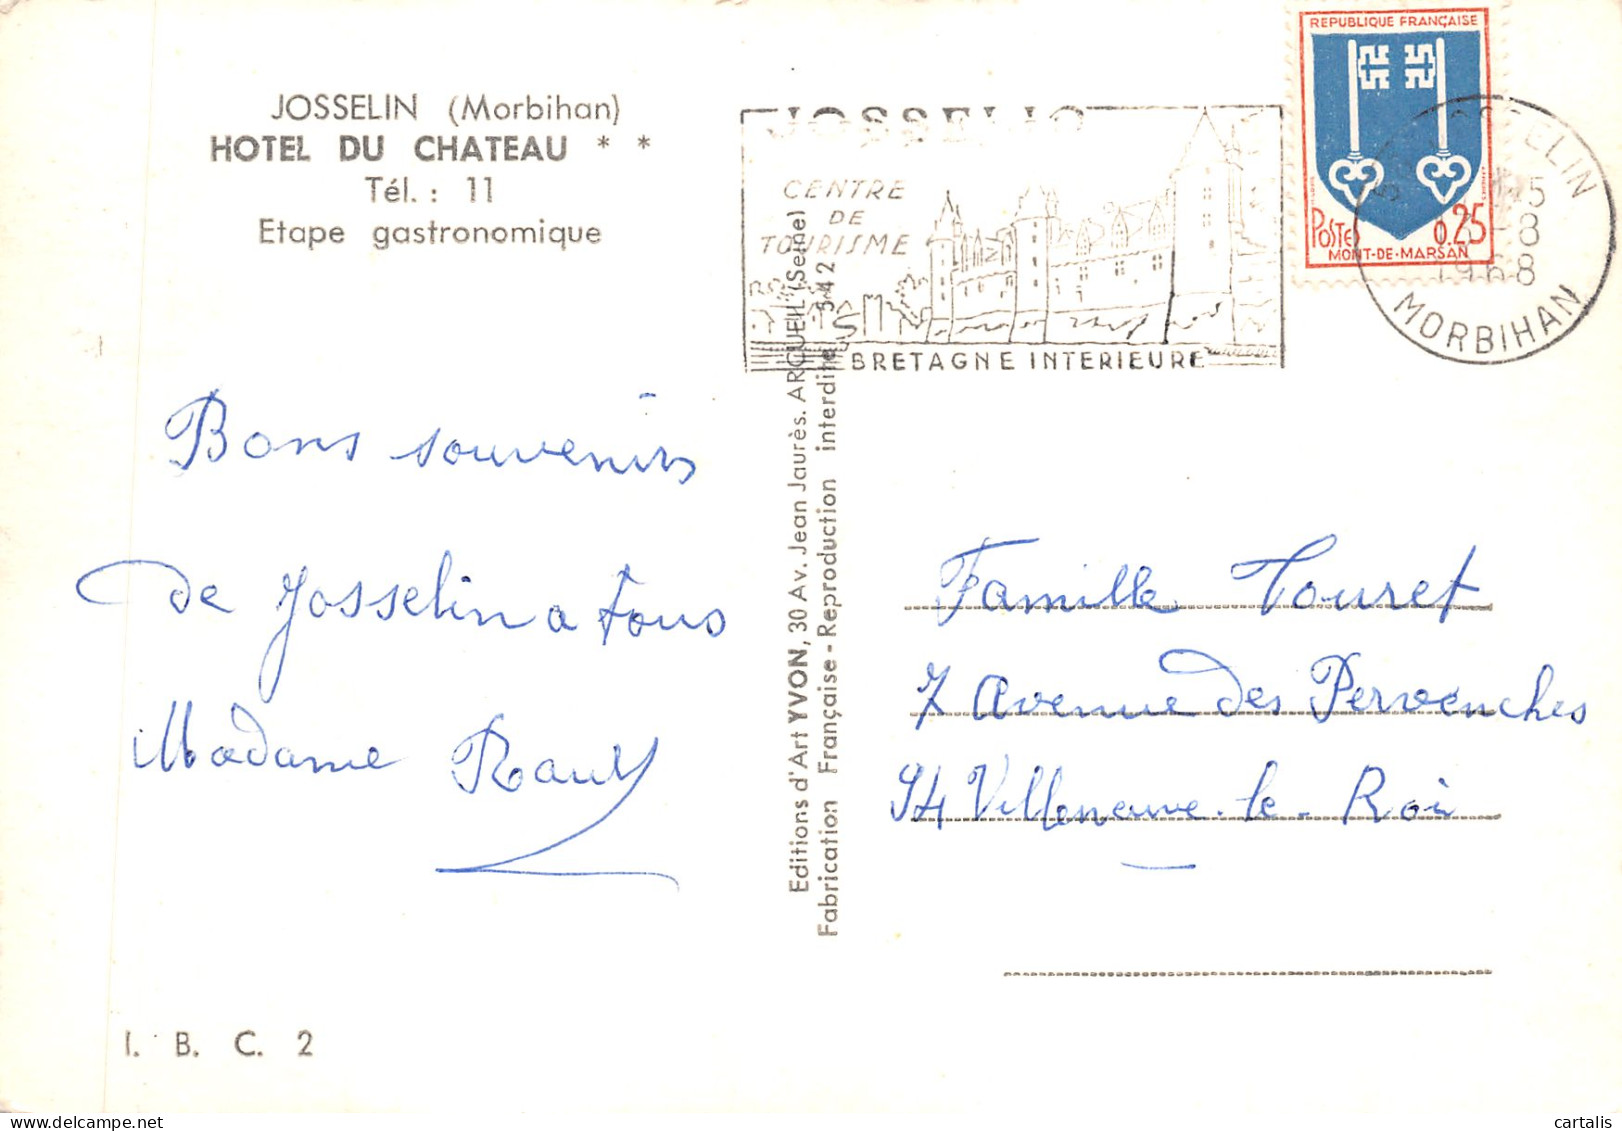 JOSSELIN (Morbihan)
HOTEL DU CHATEAU * *
Tél. : 11
Etape gastronomique
Bons souvenirs
de Josselin a tous
Madame Rault
I. B. C. 2
Editions d'Art YVON, 30 Av. Jean Jaurès. ARCUEIL (Seine)
Fabrication Française - Reproduction interdite 342
JOSSELIN
CENTRE
DE
TOURISME
BRETAGNE INTERIEURE
REPUBLIQUE FRANÇAISE
POSTES 0.25
MONT-DE-MARSAN
JOSSELIN
-8
1968
MORBIHAN
Famille Touret
7 Avenue des Pervenches
94 Villeneuve-le-Roi
cartalis